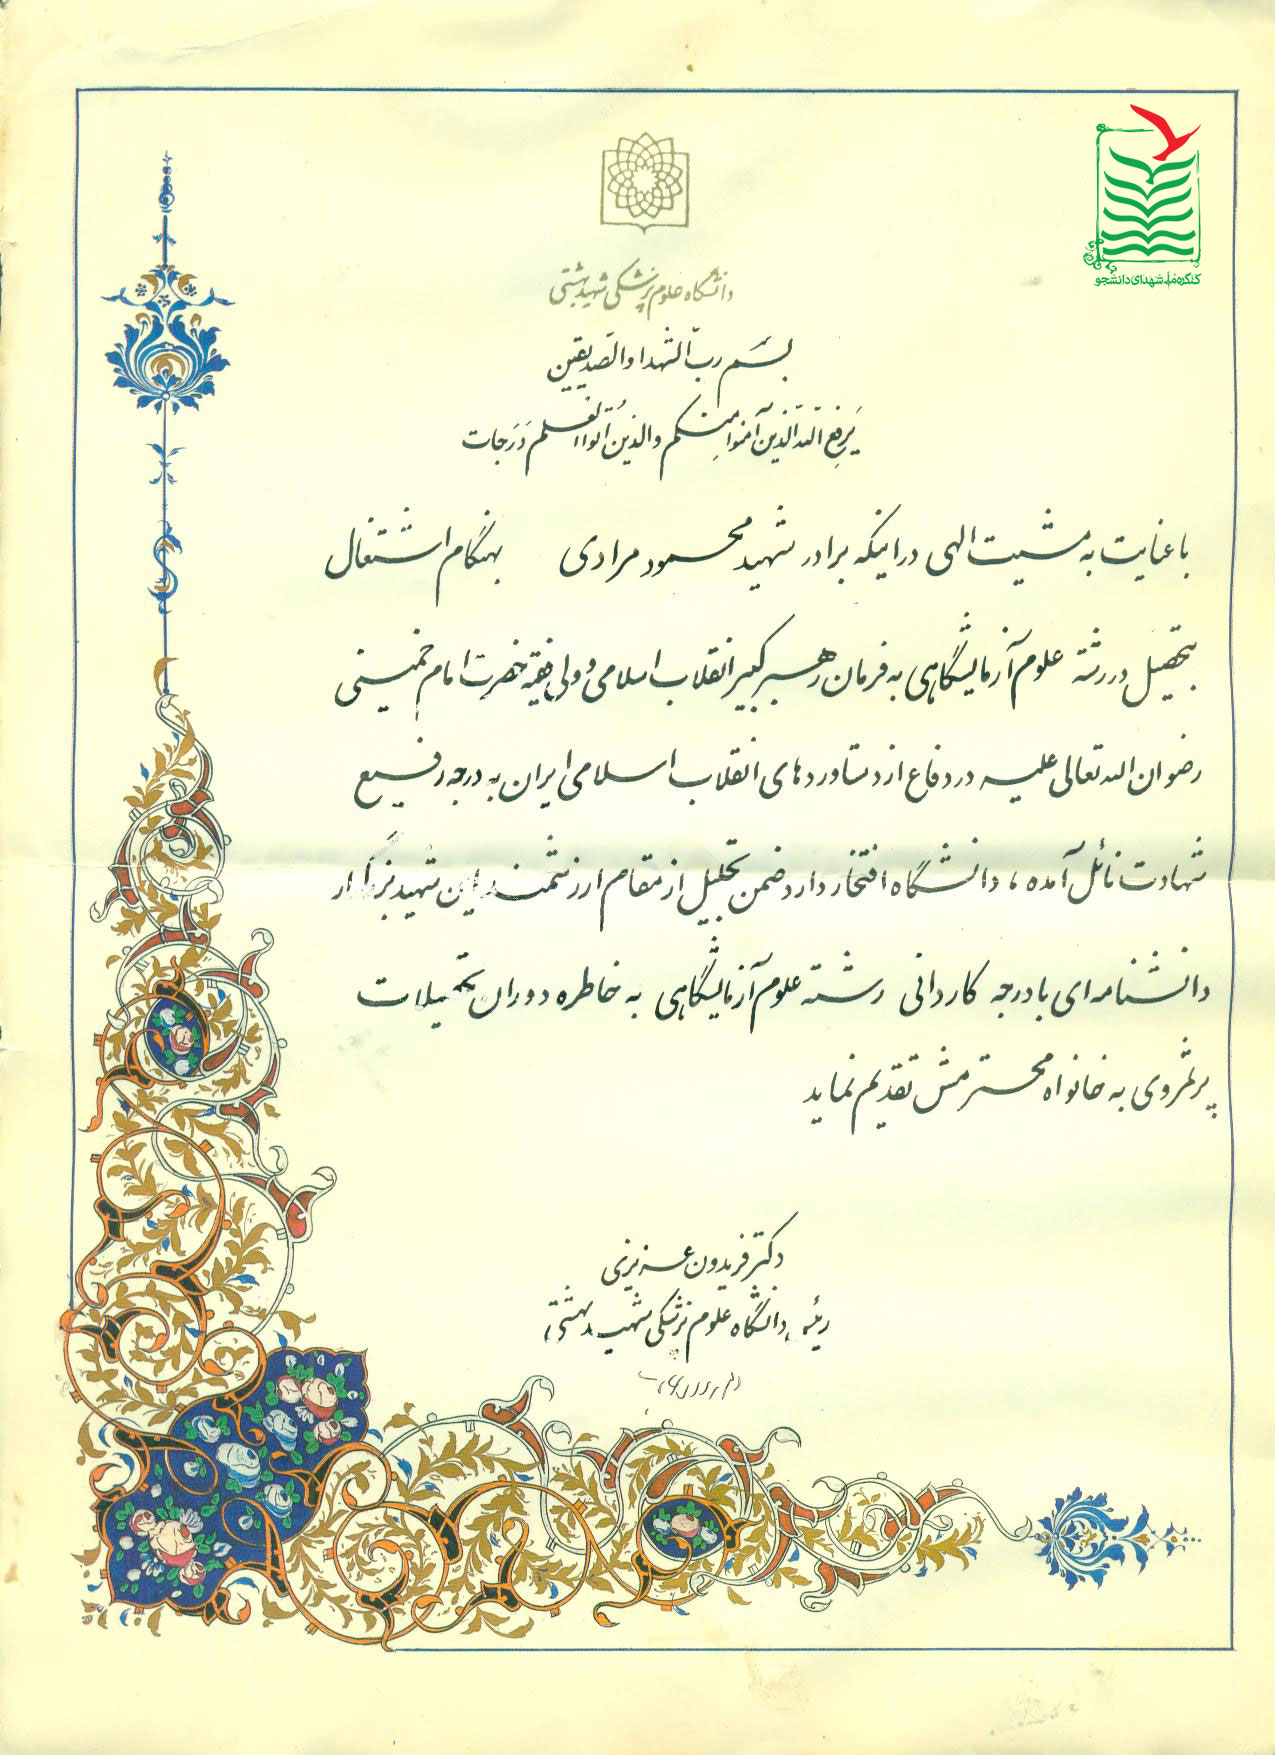 کنگره ملی شهدای دانشجو
دانشگاه علوم پزشکی شهید بهشتی
بسم رب الشهدا والصدیقین
یَرفِعِ الله الَّذینَ آمَنوا مِنکم والذین اُتوا العلم دَرَجات
با عنایت به مشیت الهی در اینکه برادر شهید محمود مرادی بهنگام اشتغال
بتحصیل در رشته علوم آزمایشگاهی به فرمان رهبر کبیر انقلاب اسلامی و ولی فقیه حضرت امام خمینی
رضوان الله تعالی علیه در دفاع از دستاوردهای انقلاب اسلامی ایران به درجه رفیع
شهادت نائل آمده، دانشگاه افتخار دارد ضمن تجلیل از مقام ارزشمند این شهید بزرگوار
دانشنامه‌ای با درجه کاردانی رشته علوم آزمایشگاهی به خاطره دوران تحصیلات
پرثمروی به خانواه محترمش تقدیم نماید
دکتر فریدون عزیزی
رئیس دانشگاه علوم پزشکی شهید بهشتی